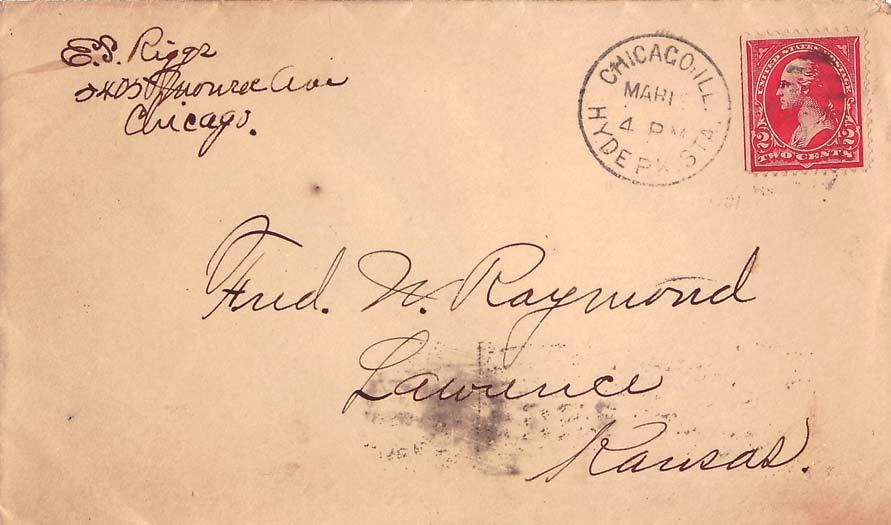 E.S. Riggs
5405 Monroe Ave
Chicago.
CHICAGO, ILL.
MAR 1
4 PM
HYDE PK. STA.
UNITED STATES POSTAGE
2 2
TWO CENTS
Fred. N. Raymond
Lawrence
Kansas.